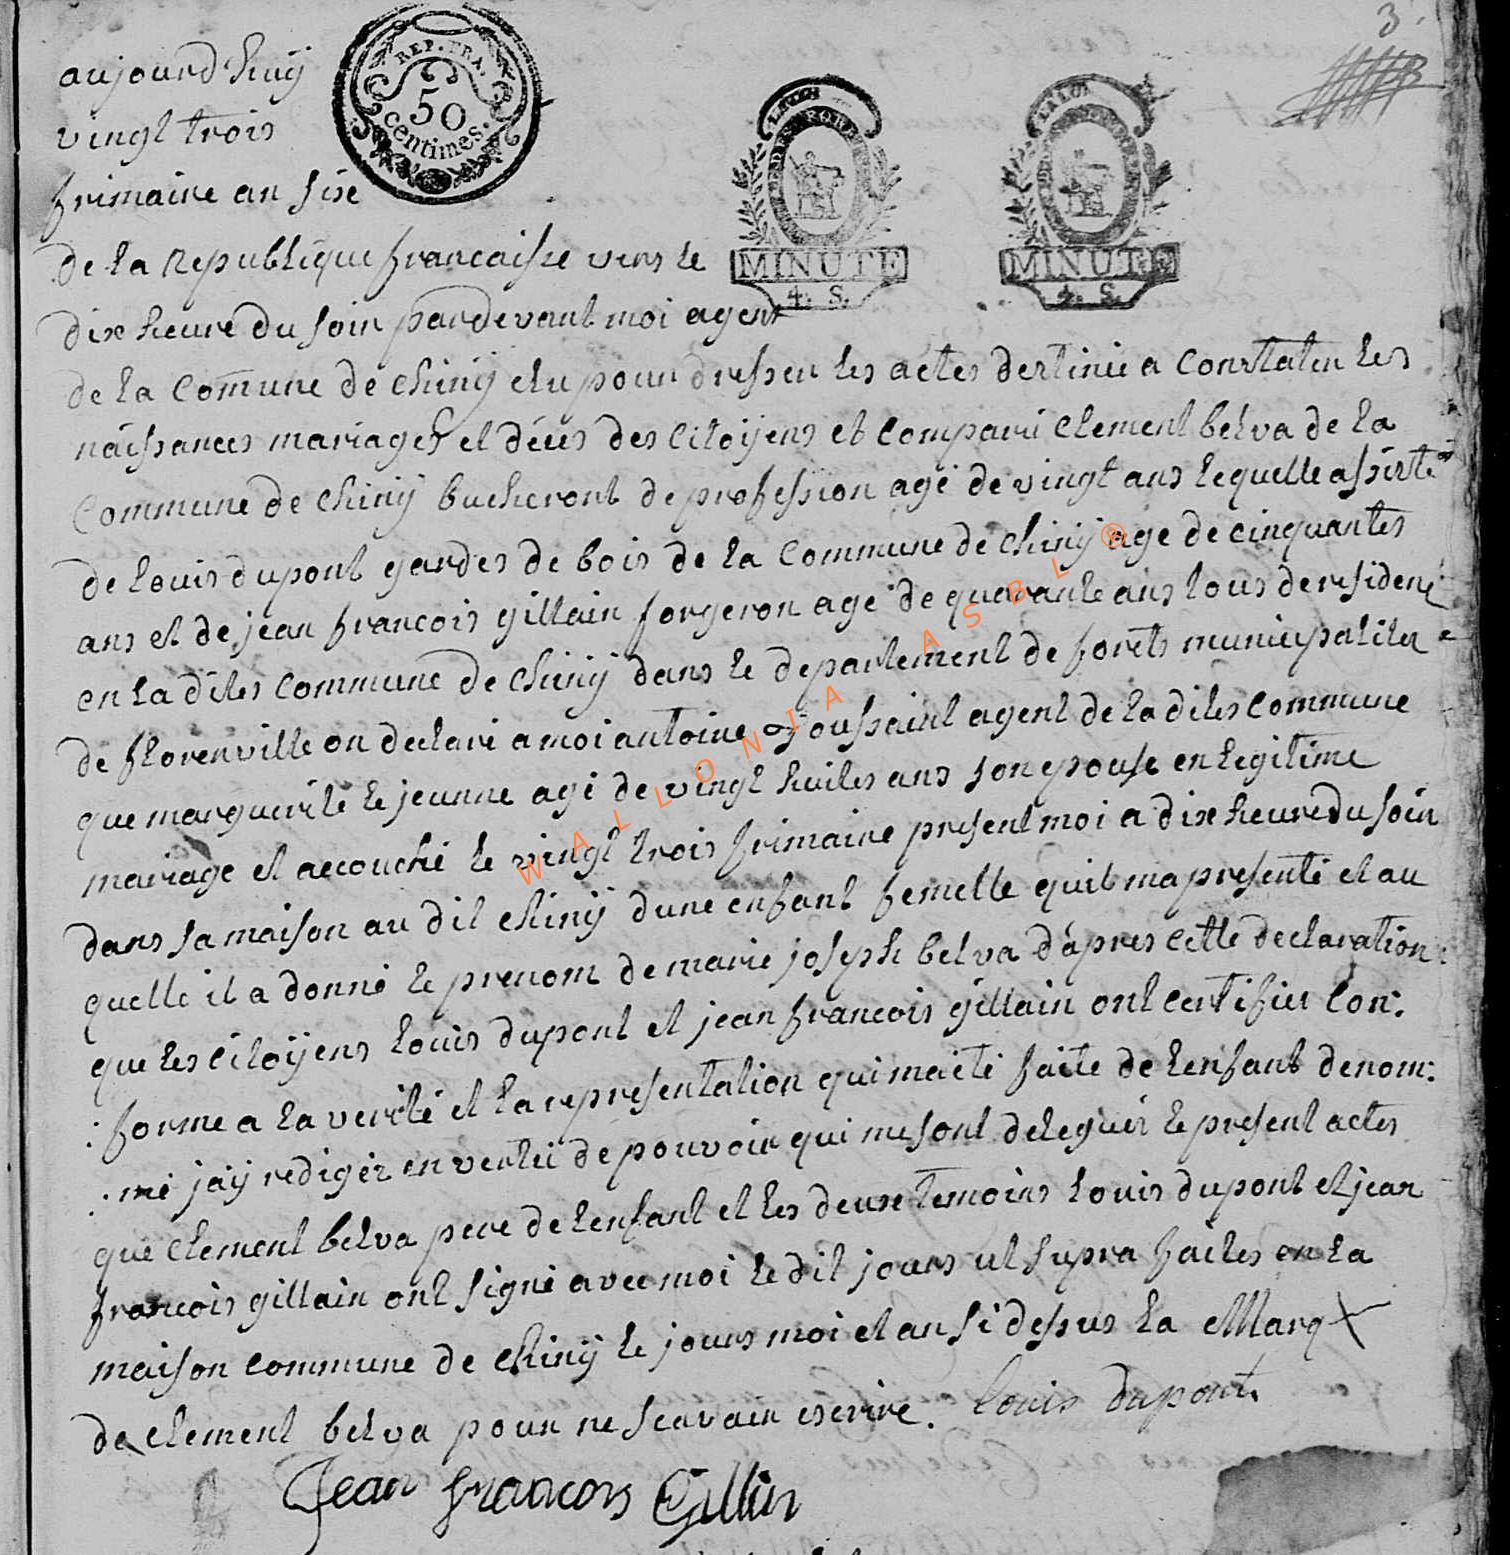 3.
REP. FRA.
50
centimes.
MINUTE
4. S.
MINUTE
4. S.
aujourd huÿ
vingt trois
frimaire an sixe
de la republique francaisse vers le
dixe heure du soir pardevant moi agent
de la Com̄une de chinÿ elu pour dresser les actes destinié a Constater les
naissances mariages et déces des Citoÿens et Comparu Clement belva de la
Commune de chinÿ bucheront de profession agé de vingt ans lequelle assisté
de louis dupont gardes de bois de la Commune de chinÿ age de cinquantes
ans et de jean francois gillain forgeron age de quarante ans tous de residene
en la dites Commune de chinÿ dans le departement de forets municipalites
de florenville on declaré a moi antoine toussaint agent de la dites Commune
que marguerite le jeunne agé de vingt huites ans son epouse en legitime
mairage et acouché le vingt trois frimaire present moi a dixe heure du soir
dans sa maison au dit chinÿ dune enfant femelle quil ma presenté et au
quelle il a donné le prenom de marie joseph belva d'apres Cette declaration
que les Citoÿens louis dupont et jean francois gillain ont certifier Con:
: forme a la verité et la representation qui maété faite de lenfant denom:
: mé jaÿ rediger en vertu de pouvoir qui me sont deleguér le present actes
que Clement belva pere de lenfant et les deuxe temoins louis dupont et jean
francois gillain ont signé avec moi le dit jours ut supra faites en la
maison Commune de chinÿ le jours moi et an si dessus la Marq X
de Clement belva pour ne scavair escrire. louis dupont.
Jean francois Gillin
WALLONIA ASBL ®